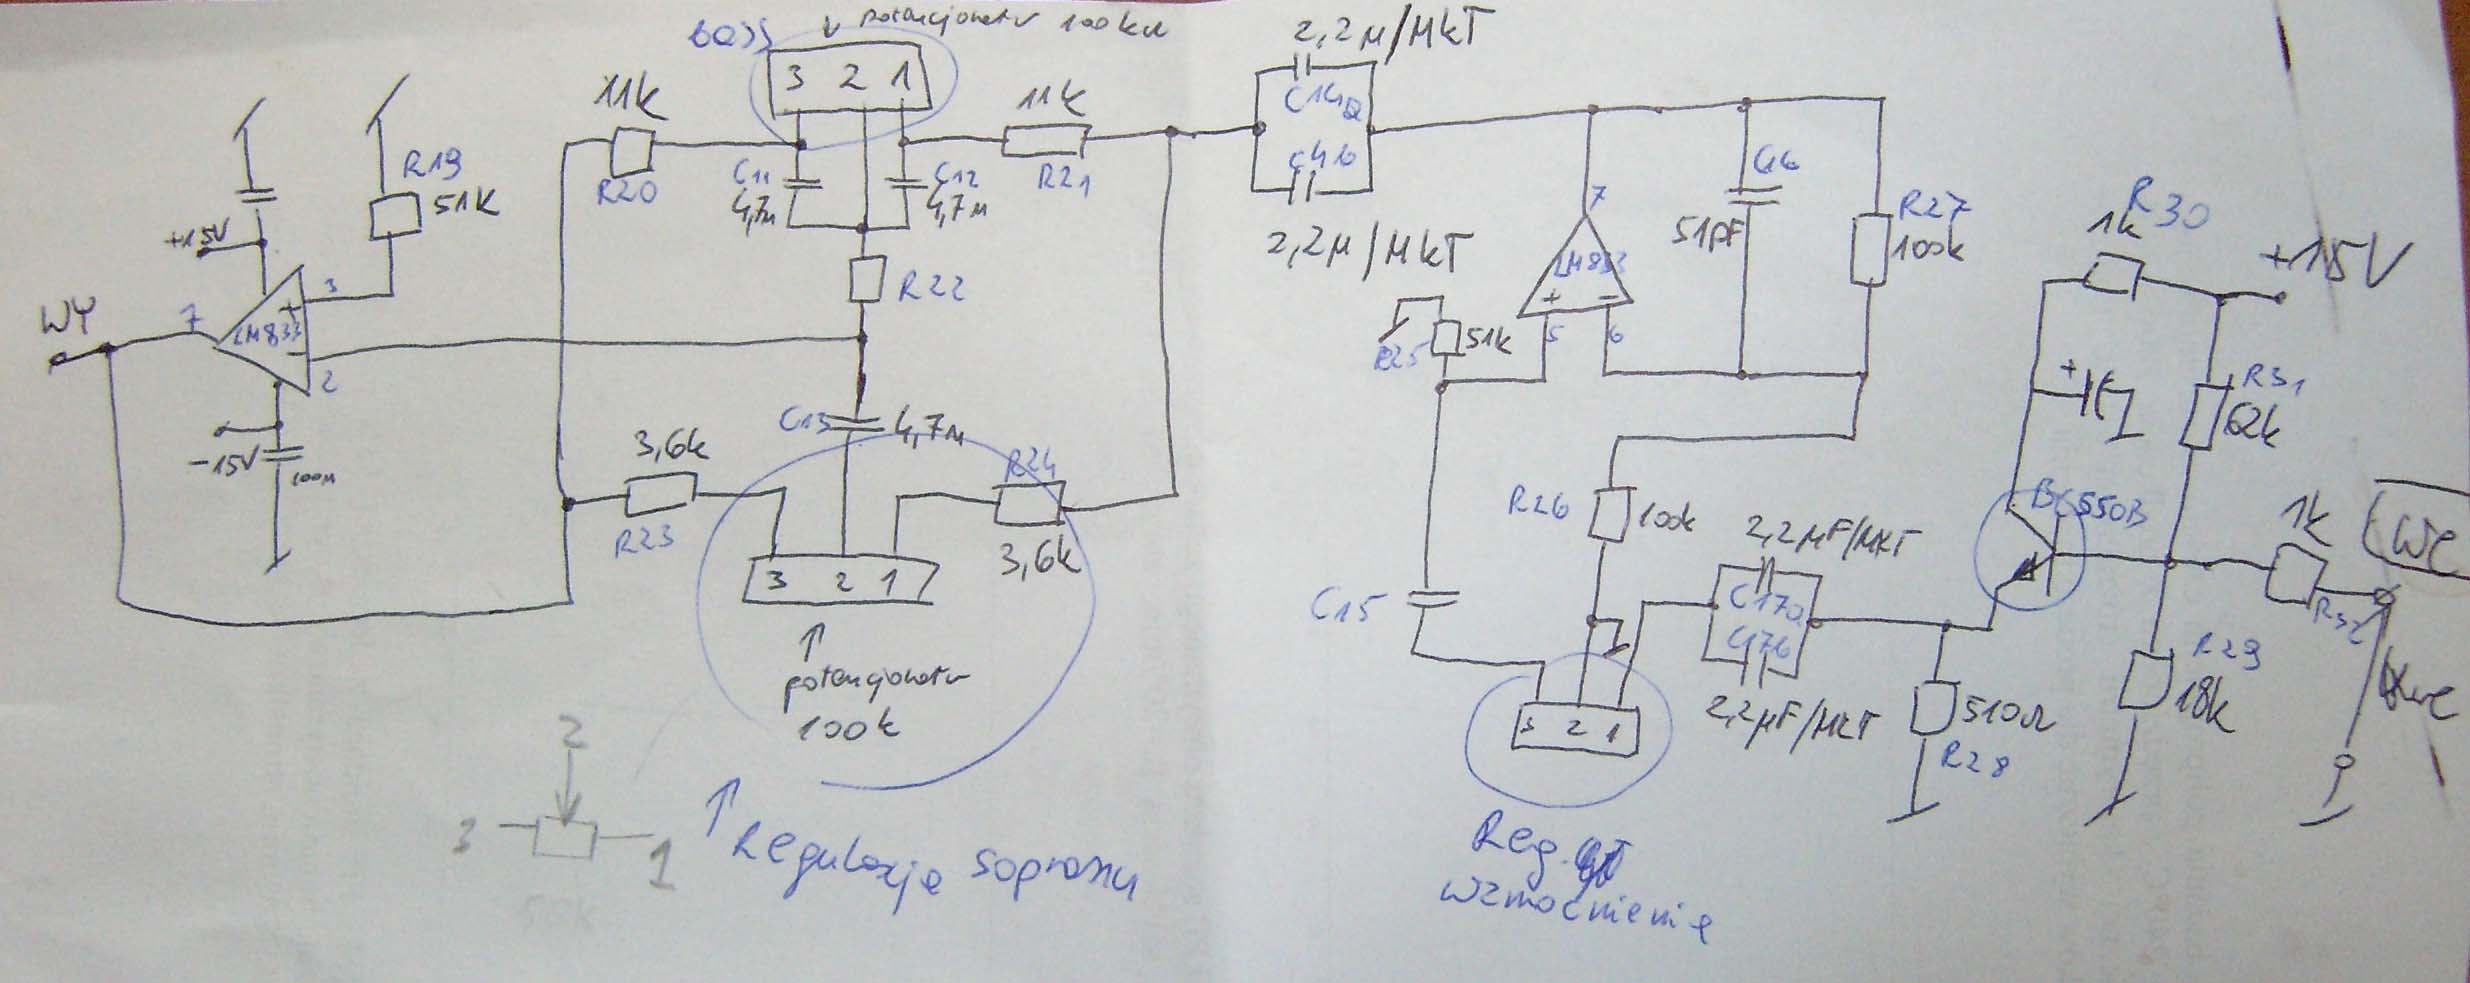 bass
potencjometr 100kΩ
3 2 1
11k
R20
11k
R21
C11
4,7n
C12
4,7n
R22
R19
51K
+15V
LM833
3
2
7
WY
-15V
100n
C13
4,7n
3,6k
R23
R24
3,6k
3 2 1
potencjometr
100k
Regulacja sopranu
2
3
1
50k
2,2µ/MKT
C14a
C14b
2,2µ/MKT
7
LM833
5
6
51k
R25
C16
51pF
R27
100k
R26
100k
C15
2,2µF/MKT
C17a
C17b
2,2µF/MKT
3 2 1
Reg.
wzmocnienie
R30
1k
+15V
R31
62k
BC550B
1k
R32
We
R29
18k
510Ω
R28